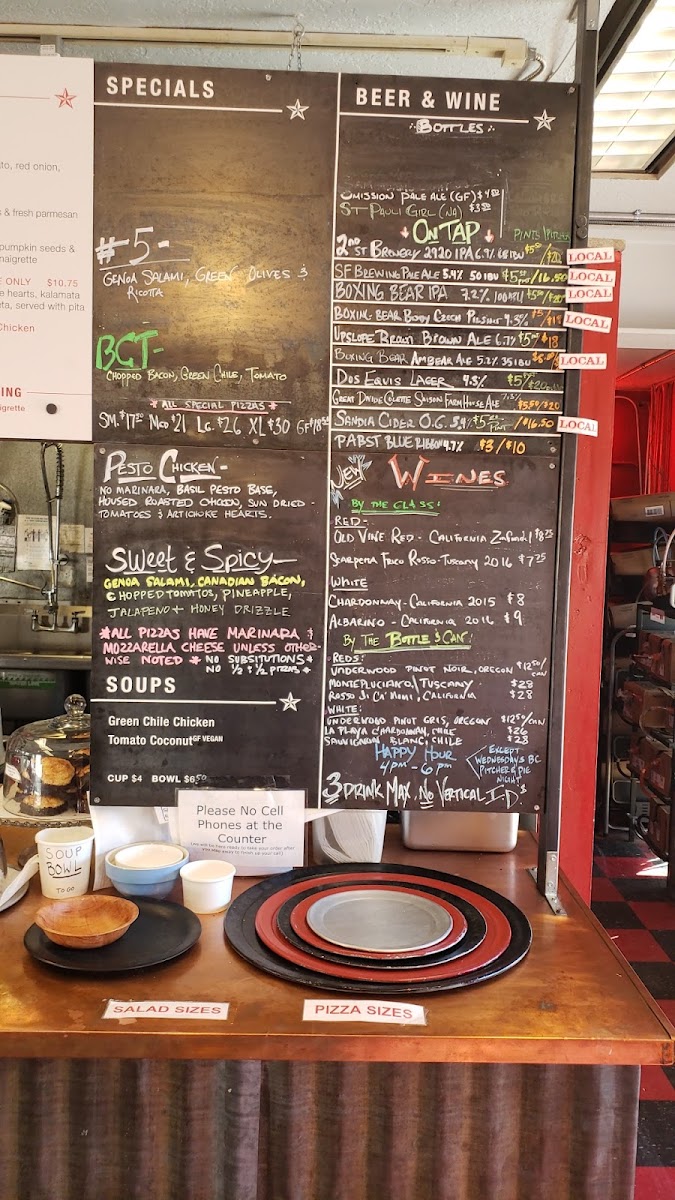 to, red onion,
& fresh parmesan
pumpkin seeds &
naigrette
E ONLY $10.75
e hearts, kalamata
eta, served with pita
Chicken
ING
aigrette
SPECIALS
#5-
GENOA SALAMI, GREEN OLIVES &
RICOTTA
BCT-
CHOPPED BACON, GREEN CHILE, TOMATO
* ALL SPECIAL PIZZAS *
SM. $17.50 MED $21 LG. $26 XL $30 GF $18.55
PESTO CHICKEN-
NO MARINARA, BASIL PESTO BASE,
HOUSED ROASTED CHICKEN, SUN DRIED-
TOMATOES & ARTICHOKE HEARTS.
SWEET & SPICY-
GENOA SALAMI, CANADIAN BACON,
CHOPPED TOMATOS, PINEAPPLE,
JALAPENO + HONEY DRIZZLE
*ALL PIZZAS HAVE MARINARA &
MOZZARELLA CHEESE UNLESS OTHER-
WISE NOTED * NO SUBSTITUTIONS *
NO ½ & ½ PIZZAS *
SOUPS
Green Chile Chicken
Tomato Coconut GF VEGAN
CUP $4 BOWL $6.50
BEER & WINE
BOTTLES
OMISSION PALE ALE (GF) $4.50
ST PAULI GIRL (NA) $3.50
ON TAP
PINTS/PITCHER
2ND ST BREWERY 2920 IPA 6.9% 68 IBU LOCAL
SF BREWING PALE ALE 5.4% 50 IBU $5.00 /16.50 LOCAL
BOXING BEAR IPA 7.2% 100 IBU LOCAL
BOXING BEAR BODY CZECH PILSNER 4.3% LOCAL
UPSLOPE BROWN BROWN ALE 6.7% $5 $18
BOXING BEAR AMBEAR ALE 5.2% 35 IBU LOCAL
DOS EQUIS LAGER 4.8%
GREAT DIVIDE COLETTE SAISON FARMHOUSE ALE 7.3% $5.50/$20
SANDIA CIDER O.G. LOCAL
PABST BLUE RIBBON 4.7% $3/$10
NEW WINES
BY THE GLASS:
RED-
OLD VINE RED - CALIFORNIA Zinfandel $8.75
SCARPETTA FRICO ROSSO-TUSCANY 2016 $7.75
WHITE
CHARDONNAY-CALIFORNIA 2015 $8
ALBARINO - CALIFORNIA 2016 $9
BY THE BOTTLE & CAN:
REDS:
UNDERWOOD PINOT NOIR, OREGON $12.50/CAN
MONTEPULCIANO/TUSCANY $28
ROSSO DI CA' MOMI, CALIFORNIA $28
WHITE:
UNDERWOOD PINOT GRIS, OREGON $12.50/CAN
LA PLAYA CHARDONNAY, CHILE $26
SAUVIGNON BLANC, CHILE $28
HAPPY HOUR
4PM - 6PM
EXCEPT
WEDNESDAYS BC
PITCHER & PIE
NIGHT
3 DRINK MAX. NO VERTICAL I.D.'S
Please No Cell
Phones at the
Counter
SOUP
BOWL
TO GO
SALAD SIZES
PIZZA SIZES